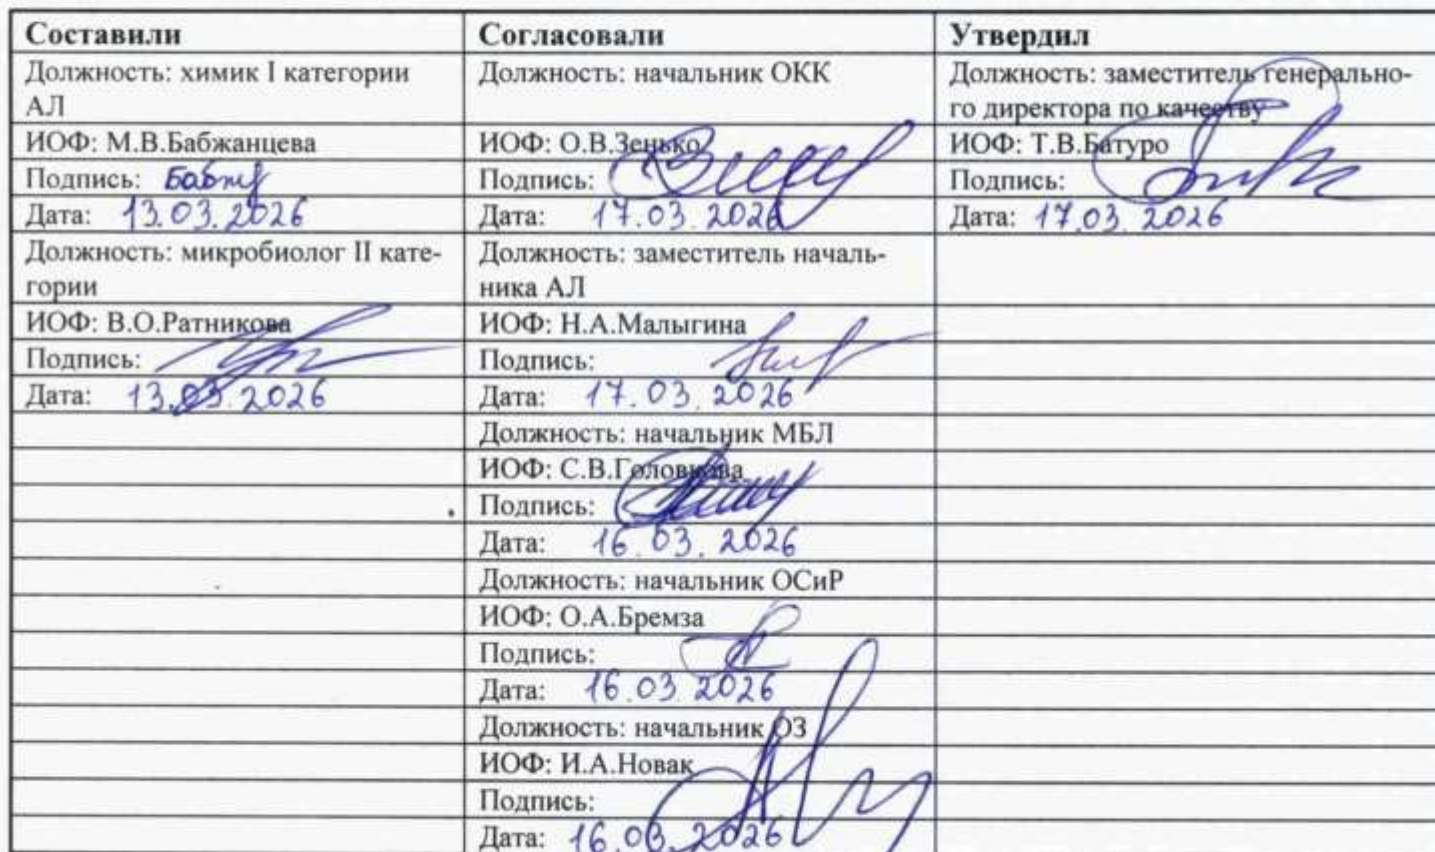 Составили
Согласовали
Утвердил
Должность: химик I категории
АЛ
Должность: начальник ОКК
Должность: заместитель генерально-
го директора по качеству
ИОФ: М.В.Бабжанцева
ИОФ: О.В.Зенько
ИОФ: Т.В.Батуро
Подпись:
Подпись:
Подпись:
Дата: 13.03.2026
Дата: 17.03.2026
Дата: 17.03.2026
Должность: микробиолог II кате-
гории
Должность: заместитель началь-
ника АЛ
ИОФ: В.О.Ратникова
ИОФ: Н.А.Малыгина
Подпись:
Подпись:
Дата: 13.03.2026
Дата: 17.03.2026
Должность: начальник МБЛ
ИОФ: С.В.Головкова
Подпись:
Дата: 16.03.2026
Должность: начальник ОСиР
ИОФ: О.А.Бремза
Подпись:
Дата: 16.03.2026
Должность: начальник ОЗ
ИОФ: И.А.Новак
Подпись:
Дата: 16.03.2026